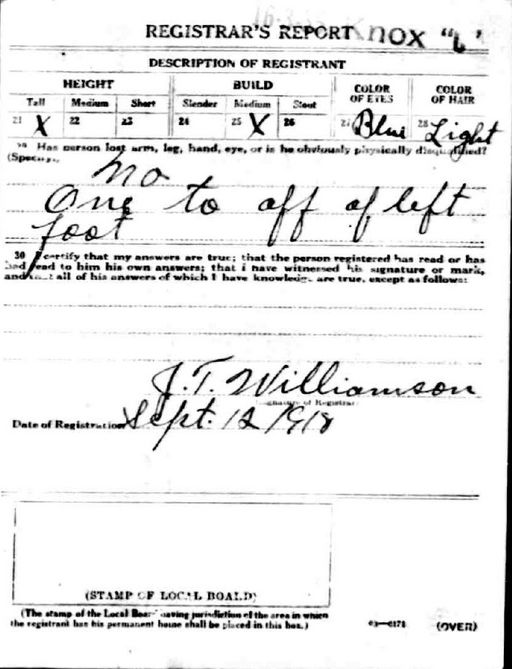 REGISTRAR'S REPORT Knox "L"
DESCRIPTION OF REGISTRANT
HEIGHT BUILD COLOR OF EYES COLOR OF HAIR
Tall Medium Short Slender Medium Stout
21 X 22 23 24 25 X 26 27 Blue 28 Light
29 Has person lost arm, leg, hand, eye, or is he obviously physically disqualified?
(Specify.)
No
One to off of left
foot
30 I certify that my answers are true; that the person registered has read or has
had read to him his own answers; that I have witnessed his signature or mark,
and that all of his answers of which I have knowledge are true, except as follows:
J.T. Williamson
Signature of Registrar
Date of Registration Sept. 12 1918
(STAMP OF LOCAL BOARD)
(The stamp of the Local Board having jurisdiction of the area in which
the registrant has his permanent home shall be placed in this box.)
03—6171 (OVER)